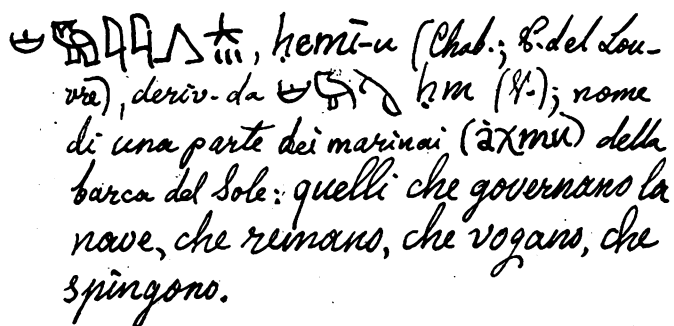 , ḥemī-u (Chab.; P. del Lou-
vre), deriv. da ḥm (V.); nome
di una parte dei marinai (àχmu) della
barca del Sole: quelli che governano la
nave, che remano, che vogano, che
spingono.